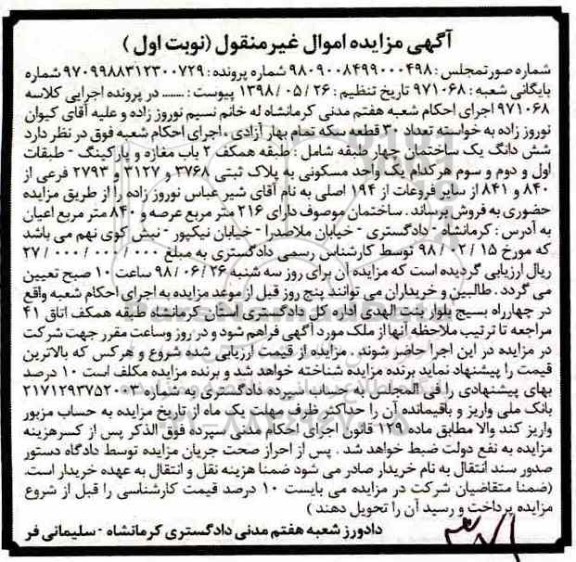 آگهی مزایده اموال غیر منقول (نوبت اول)
شماره صورتمجلس: ۹۸۰۹۰۰۸۴۹۹۰۰۰۴۹۸ شماره پرونده: ۹۷۰۹۹۸۸۳۱۲۳۰۰۷۲۹ شماره
بایگانی شعبه: ۹۷۱۰۶۸ تاریخ تنظیم: ۱۳۹۸/۰۵/۲۶ پیوست: ........ در پرونده اجرایی کلاسه
۹۷۱۰۶۸ اجرای احکام شعبه هفتم مدنی کرمانشاه له خانم نسیم نوروز زاده و علیه آقای کیوان
نوروز زاده به خواسته تعداد ۳۰ قطعه سکه تمام بهار آزادی، اجرای احکام شعبه فوق در نظر دارد
شش دانگ یک ساختمان چهار طبقه شامل: طبقه همکف ۲ باب مغازه و پارکینگ - طبقات
اول و دوم و سوم هرکدام یک واحد مسکونی به پلاک ثبتی ۳۷۶۸ و ۳۱۲۷ و ۲۷۹۳ فرعی از
۸۴۰ و ۸۴۱ از سایر فروعات از ۱۹۴ اصلی به نام آقای شیر عباس نوروز زاده را از طریق مزایده
حضوری به فروش برساند. ساختمان موصوف دارای ۲۱۶ متر مربع عرصه و ۸۴۰ متر مربع اعیان
به آدرس: کرمانشاه - دادگستری - خیابان ملاصدرا - خیابان نیکپور - نبش کوی نهم می باشد
که مورخ ۹۸/۰۲/۱۵ توسط کارشناس رسمی دادگستری به مبلغ ۲۷/۰۰۰/۰۰۰/۰۰۰
ریال ارزیابی گردیده است که مزایده آن برای روز سه شنبه ۹۸/۰۶/۲۶ ساعت ۱۰ صبح تعیین
می گردد. طالبین و خریداران می توانند پنج روز قبل از موعد مزایده به اجرای احکام شعبه واقع
در چهارراه بسیج بلوار بنت الهدی اداره کل دادگستری استان کرمانشاه طبقه همکف اتاق ۴۱
مراجعه تا ترتیب ملاحظه آنها از ملک مورد آگهی فراهم شود و در روز وساعت مقرر جهت شرکت
در مزایده در این اجرا حاضر شوند. مزایده از قیمت ارزیابی شده شروع و هرکس که بالاترین
قیمت را پیشنهاد نماید برنده مزایده شناخته خواهد شد و برنده مزایده مکلف است ۱۰ درصد
بهای پیشنهادی را فی المجلس به حساب سپرده دادگستری به شماره ۲۱۷۱۲۹۳۷۵۲۰۰۳
بانک ملی واریز و باقیمانده آن را حداکثر ظرف مهلت یک ماه از تاریخ مزایده به حساب مزبور
واریز کند والا مطابق ماده ۱۲۹ قانون اجرای احکام مدنی سپرده فوق الذکر پس از کسرهزینه
مزایده به نفع دولت ضبط خواهد شد. پس از احراز صحت جریان مزایده توسط دادگاه دستور
صدور سند انتقال به نام خریدار صادر می شود ضمنا هزینه نقل و انتقال به عهده خریدار است.
(ضمنا متقاضیان شرکت در مزایده می بایست ۱۰ درصد قیمت کارشناسی را قبل از شروع
مزایده پرداخت و رسید آن را تحویل دهند)
دادورز شعبه هفتم مدنی دادگستری کرمانشاه - سلیمانی فر